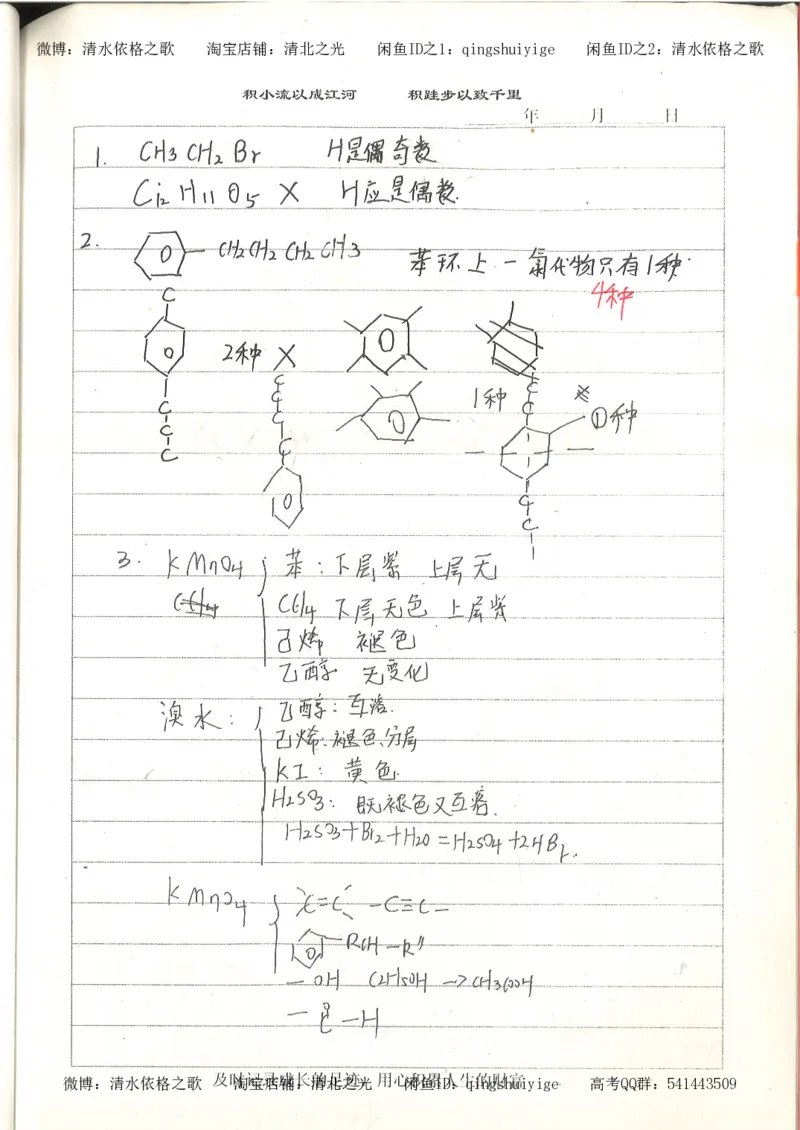 微博：清水依格之歌 淘宝店铺：清北之光 闲鱼ID之1：qingshuiyige 闲鱼ID之2：清水依格之歌
积小流以成江河 积跬步以致千里
年 月 日
1. CH3CH2Br H是偶奇数
C12H11O5 X H应是偶数.
2. CH2CH2CH2CH3 苯环上一氯代物只有1种.
4种
C
2种 X
C
C
C
C
C
C
C
1种
C
C
①种
C
C
3. KMnO4 苯：下层紫 上层无
CCl4 CCl4 下层无色 上层紫
己烯 褪色
乙醇 无变化
溴水： 乙醇：互溶.
己烯：褪色、分层
KI：黄色.
H2SO3：既褪色又互溶.
H2SO3+Br2+H2O=H2SO4+2HBr.
KMnO4 C=C -C≡C-
RCH-R"
-OH C2H5OH → CH3COOH
-C-H
O
及时记录成长的足迹 用心积累人生的财富
微博：清水依格之歌 淘宝店铺：清北之光 闲鱼ID之1：qingshuiyige 高考QQ群：541443509